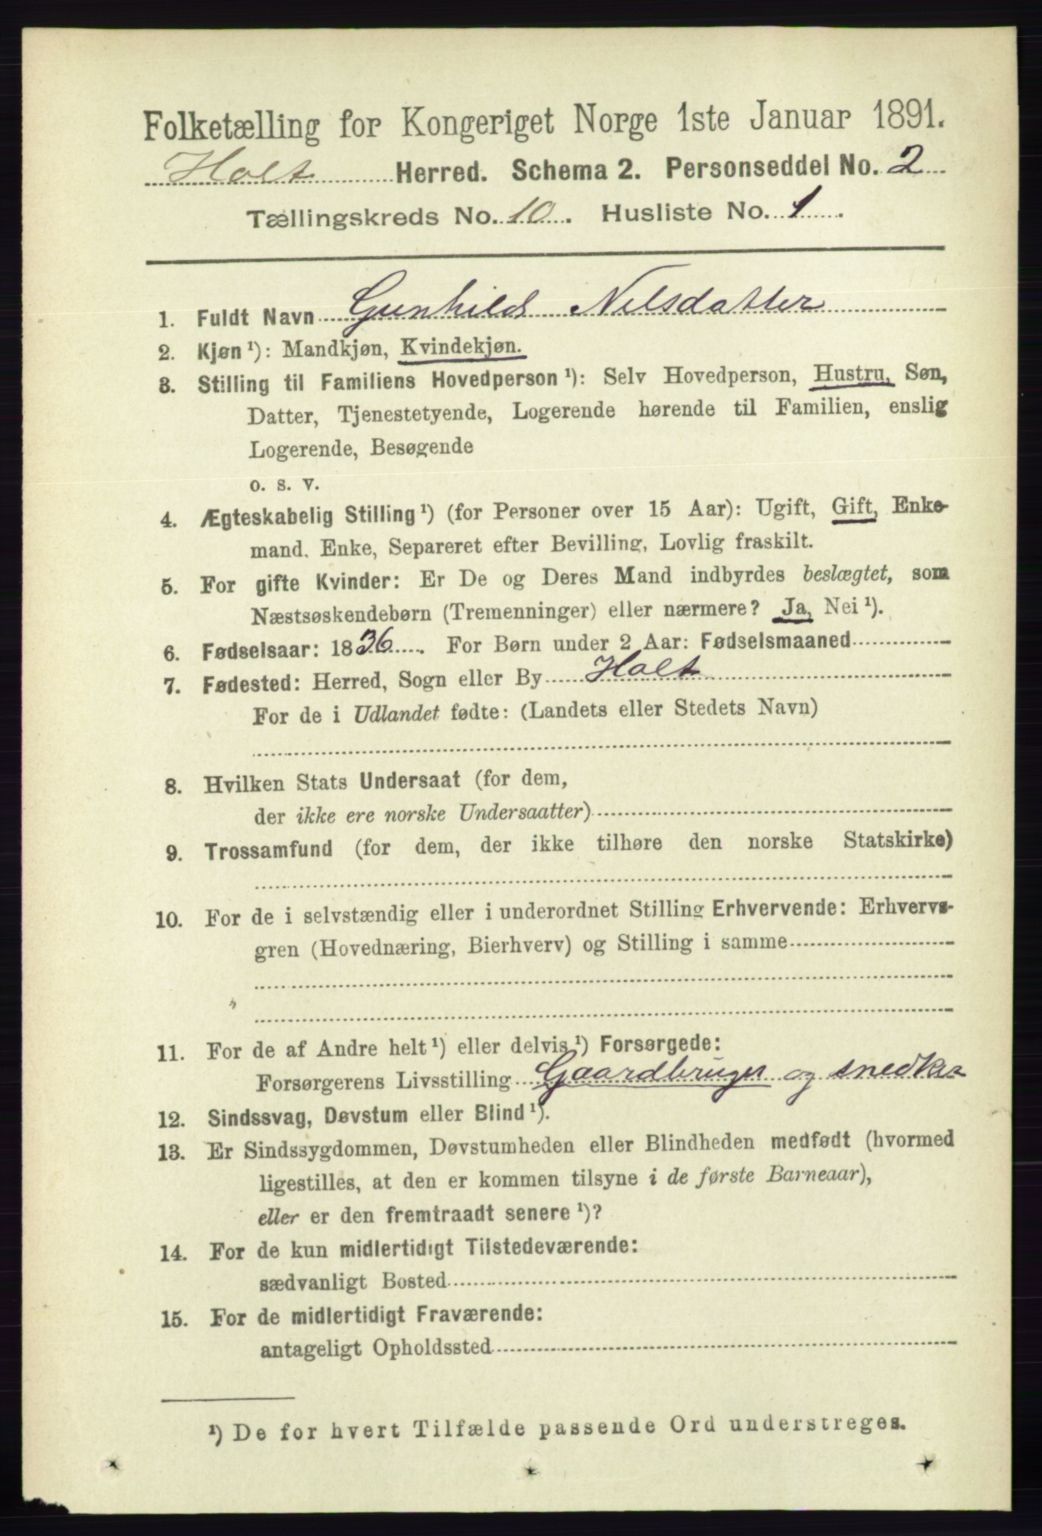 Folketælling for Kongeriget Norge 1ste Januar 1891.
Holt Herred. Schema 2. Personseddel No. 2
Tællingskreds No. 10. Husliste No. 1.
1. Fuldt Navn Gunhild Nilsdatter
2. Kjøn ¹): Mandkjøn, Kvindekjøn.
3. Stilling til Familiens Hovedperson ¹): Selv Hovedperson, Hustru, Søn,
Datter, Tjenestetyende, Logerende hørende til Familien, enslig
Logerende, Besøgende
o. s. v.
4. Ægteskabelig Stilling ¹) (for Personer over 15 Aar): Ugift, Gift, Enke-
mand, Enke, Separeret efter Bevilling, Lovlig fraskilt.
5. For gifte Kvinder: Er De og Deres Mand indbyrdes beslægtet, som
Næstsøskendebørn (Tremenninger) eller nærmere? Ja, Nei ¹).
6. Fødselsaar: 1836. For Børn under 2 Aar: Fødselsmaaned
7. Fødested: Herred, Sogn eller By Holt
For de i Udlandet fødte: (Landets eller Stedets Navn)
8. Hvilken Stats Undersaat (for dem,
der ikke ere norske Undersaatter)
9. Trossamfund (for dem, der ikke tilhøre den norske Statskirke)
10. For de i selvstændig eller i underordnet Stilling Erhvervende: Erhvervs-
gren (Hovednæring, Bierhverv) og Stilling i samme
11. For de af Andre helt ¹) eller delvis ¹) Forsørgede:
Forsørgerens Livsstilling Gaardbruger og snedker
12. Sindssvag, Døvstum eller Blind ¹).
13. Er Sindssygdommen, Døvstumheden eller Blindheden medfødt (hvormed
ligestilles, at den er kommen tilsyne i de første Barneaar),
eller er den fremtraadt senere ¹)?
14. For de kun midlertidigt Tilstedeværende:
sædvanligt Bosted
15. For de midlertidigt Fraværende:
antageligt Opholdssted
¹) De for hvert Tilfælde passende Ord understreges.